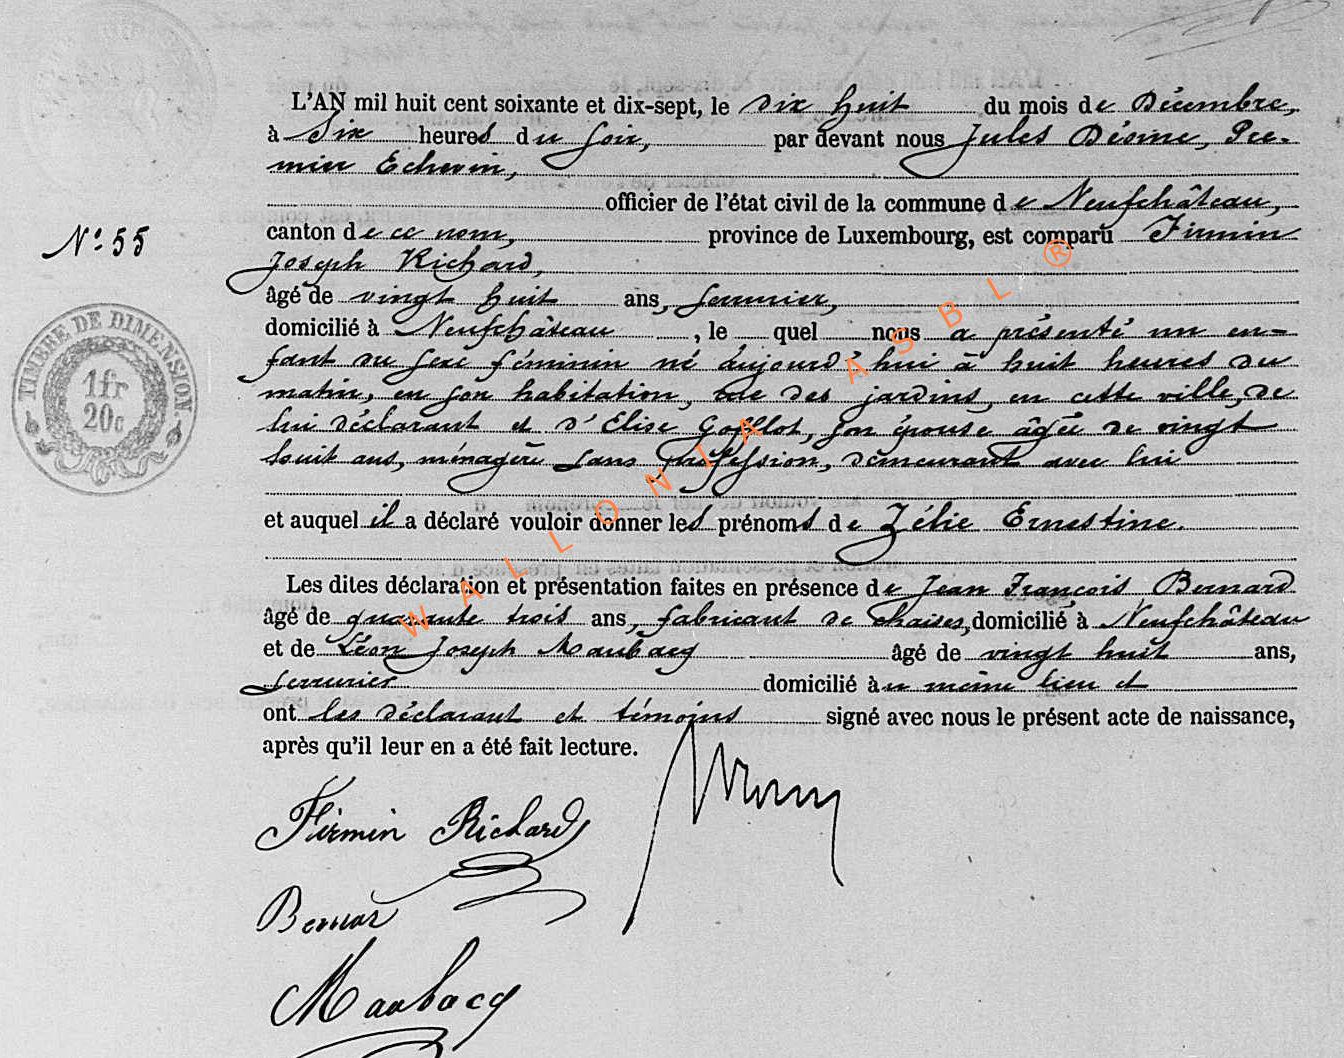 L'AN mil huit cent soixante et dix-sept, le dix huit du mois de Décembre,
à Six heures du soir, par devant nous Jules Désome, Pre-
mier Echevin,
officier de l'état civil de la commune de Neufchâteau,
canton de ce nom, province de Luxembourg, est comparu Firmin
N° 55
Joseph Richard,
âgé de vingt huit ans, serrurier,
domicilié à Neufchâteau, le quel nous a présenté un en-
fant du sexe féminin né aujourd'hui à huit heures du
matin, en son habitation, rue des jardins, en cette ville, de
lui déclarant et d'Elise Gofflot, son épouse âgée de vingt
huit ans, ménagère sans profession, demeurant avec lui
et auquel il a déclaré vouloir donner les prénoms de Zélie Ernestine.
Les dites déclaration et présentation faites en présence de Jean François Bernard
âgé de quarante trois ans, fabricant de chaises, domicilié à Neufchâteau
et de Léon Joseph Maubacq âgé de vingt huit ans,
serrurier domicilié au même lieu et
ont les déclarant et témoins signé avec nous le présent acte de naissance,
après qu'il leur en a été fait lecture.
Firmin Richard
Bernard
Maubacq
TIMBRE DE DIMENSION.
1fr
20c
WALLONIA ASBL ®